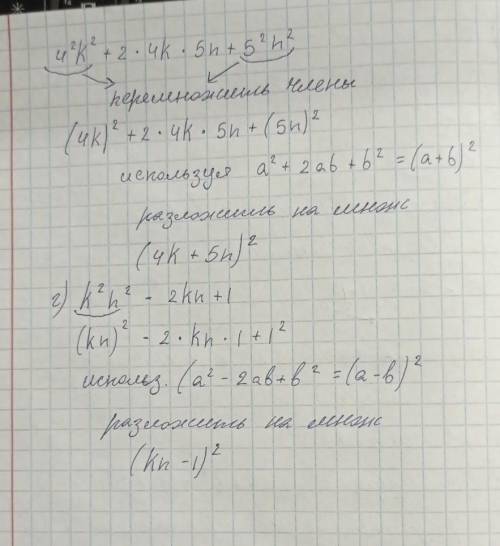 4²k² + 2 · 4k · 5n + 5²n²
перемножить члены
(4k)² + 2 · 4k · 5n + (5n)²
используя a² + 2ab + b² = (a+b)²
разложить на множ
(4k + 5n)²
г) k²n² - 2kn + 1
(kn)² - 2 · kn · 1 + 1²
использ. (a² - 2ab + b² = (a - b)²
разложить на множ
(kn - 1)²